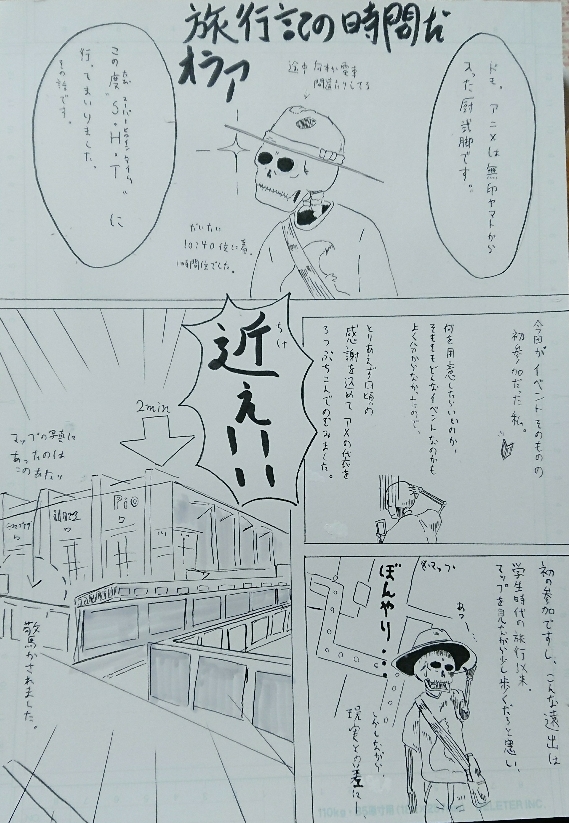 旅行記の時間だ
オラァ
ども、アニメは無印ヤマトから
入った厨弐脚です。
途中
電車
間違えたりしてる
この度"S.H.T"に
行ってまいりました。
その話です。
だいたい
10:40位に着。
1時間位でした。
今回がイベントそのものの
初参加だた私。
何を用意したらいいのか、
そもそもどんなイベントなのかも
よく分からなかったので、
とりあえず日頃の
感謝を込めてアメの代表を
ろっぷちこんでのぞみました。
近ぇ!!!
2min
マップの写真に
あったのは
このあたり
驚かされました。
初の参加ですし、こんな遠出は
学生時代の旅行以来、
マップをヨルんがい少し歩くだろと思い、
マップ
あっ
ぼんやり・・・
しかしながら、
現実との差に、
110kg
DELETER INC.